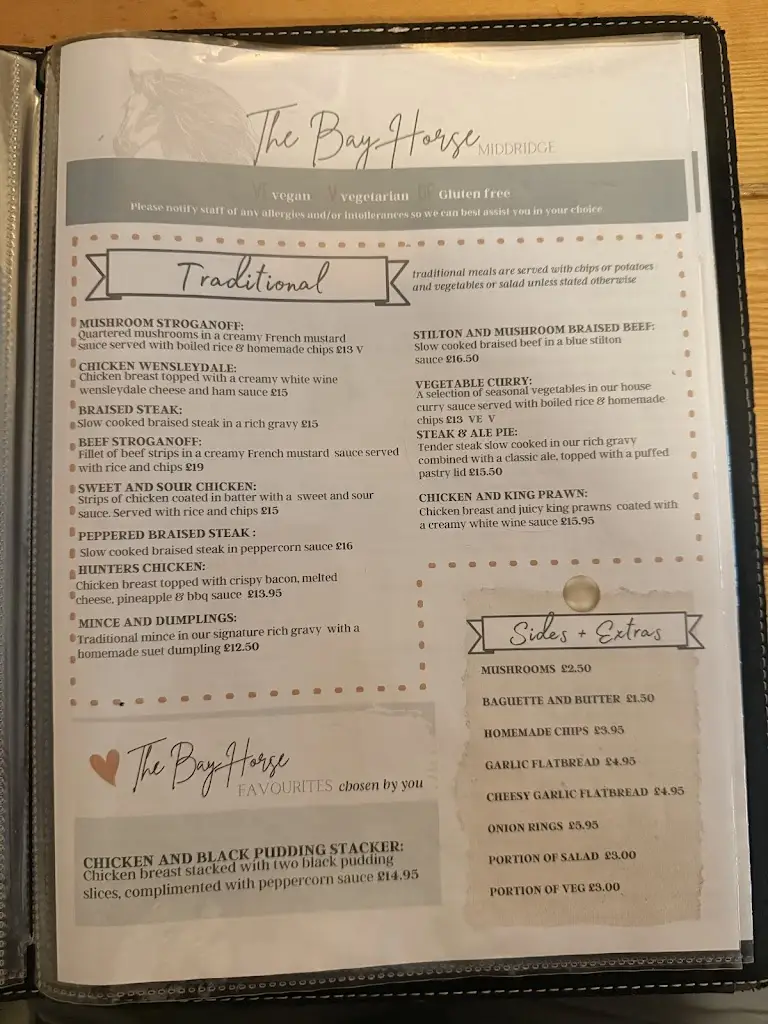 The Bay Horse MIDDRIDGE
VE vegan V vegetarian GF Gluten free
Please notify staff of any allergies and/or intollerances so we can best assist you in your choice
Traditional
traditional meals are served with chips or potatoes
and vegetables or salad unless stated otherwise
MUSHROOM STROGANOFF:
Quartered mushrooms in a creamy French mustard
sauce served with boiled rice & homemade chips £13 V
CHICKEN WENSLEYDALE:
Chicken breast topped with a creamy white wine
wensleydale cheese and ham sauce £15
BRAISED STEAK:
Slow cooked braised steak in a rich gravy £15
BEEF STROGANOFF:
Fillet of beef strips in a creamy French mustard sauce served
with rice and chips £19
SWEET AND SOUR CHICKEN:
Strips of chicken coated in batter with a sweet and sour
sauce. Served with rice and chips £15
PEPPERED BRAISED STEAK :
Slow cooked braised steak in peppercorn sauce £16
HUNTERS CHICKEN:
Chicken breast topped with crispy bacon, melted
cheese, pineapple & bbq sauce £13.95
MINCE AND DUMPLINGS:
Traditional mince in our signature rich gravy with a
homemade suet dumpling £12.50
STILTON AND MUSHROOM BRAISED BEEF:
Slow cooked braised beef in a blue stilton
sauce £16.50
VEGETABLE CURRY:
A selection of seasonal vegetables in our house
curry sauce served with boiled rice & homemade
chips £13 VE V
STEAK & ALE PIE:
Tender steak slow cooked in our rich gravy
combined with a classic ale, topped with a puffed
pastry lid £15.50
CHICKEN AND KING PRAWN:
Chicken breast and juicy king prawns coated with
a creamy white wine sauce £15.95
Sides + Extras
MUSHROOMS £2.50
BAGUETTE AND BUTTER £1.50
HOMEMADE CHIPS £3.95
GARLIC FLATBREAD £4.95
CHEESY GARLIC FLATBREAD £4.95
ONION RINGS £5.95
PORTION OF SALAD £3.00
PORTION OF VEG £3.00
The Bay Horse
FAVOURITES chosen by you
CHICKEN AND BLACK PUDDING STACKER:
Chicken breast stacked with two black pudding
slices, complimented with peppercorn sauce £14.95